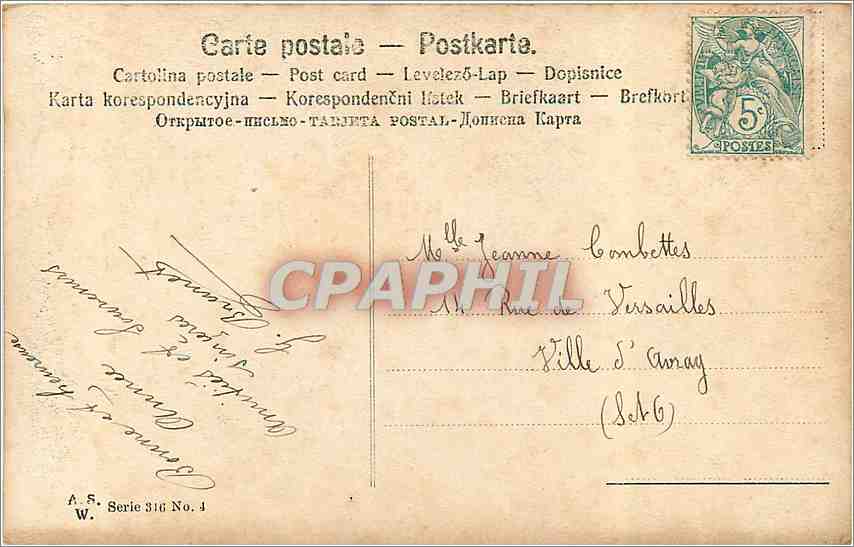 Carte postale — Postkarte.
Cartolina postale — Post card — Levelező-Lap — Dopisnice
Karta korespondencyjna — Korespondenční lístek — Briefkaart — Brefkort
Открытое-письмо-TARJETA POSTAL-Дописна Карта
5c
POSTES
Bonne et heureuse
Année
Amitiés et Souvenirs
Sincères
G. Brunet
Mlle Jeanne Combettes
14 Rue de Versailles
Ville d'Avray
(S et O)
CPAPHIL
A. S.
W.
Serie 316 No. 4